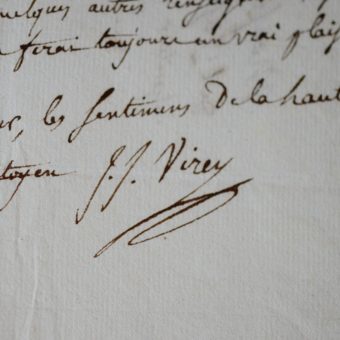 quelques autres renseigne
ferai toujours un vrai plais
les sentimens de la haut
toyen J. J. Virey